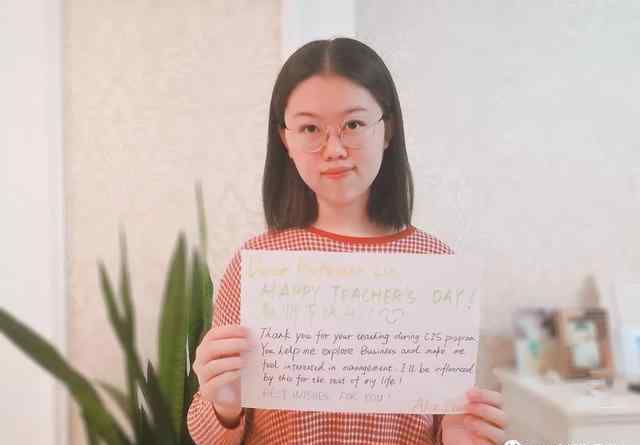 Dear Professor Lin
HAPPY TEACHER'S DAY!
Thank you for your teaching during CIS program.
You help me explore Business and make me
feel interested in management. I'll be influenced
by this for the rest of my life!
BEST WISHES FOR YOU!